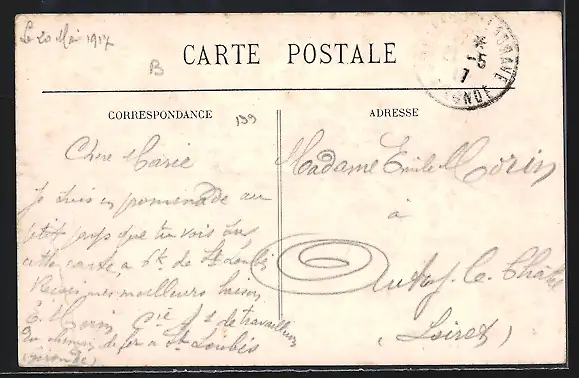 Le 20 Mai 1917
CARTE POSTALE
B
GIRONDE
CORRESPONDANCE
199
ADRESSE
Chère Marie
Je suis en promenade au
petit pays que tu vois sur
cette carte a 6k de St Loubès
Reçois mes meilleurs baisers
E. Morin Cie de travailleurs
du chemin de fer a St Loubès
(gironde)
Madame Emile Morin
à
Autry-le-Châtel
(Loiret)